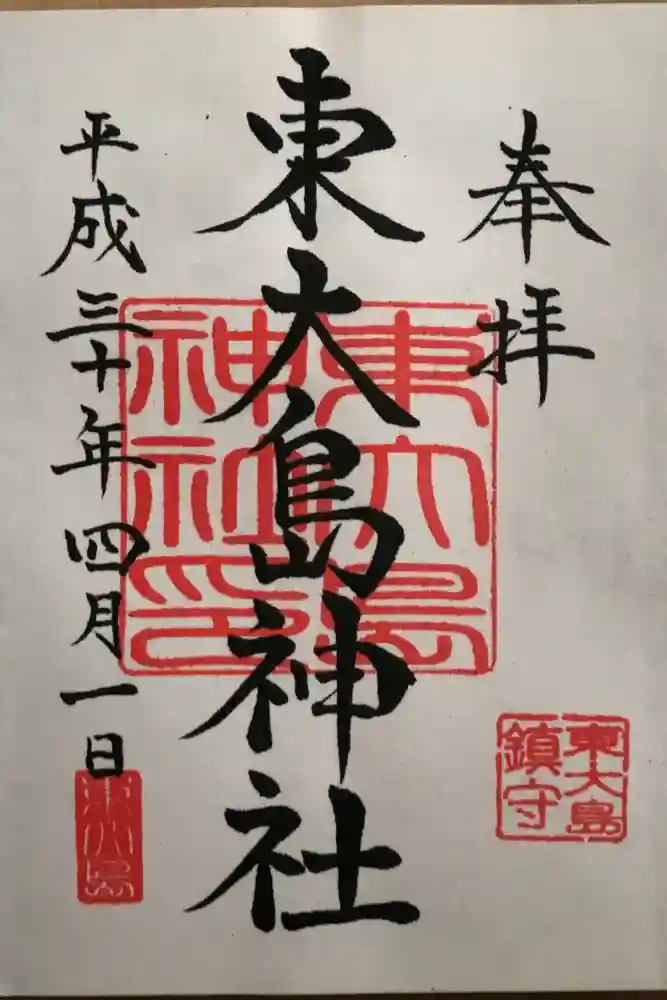 奉拝
東大島神社
平成三十年四月一日
東大島
神社印
東大島
鎮守
東大島